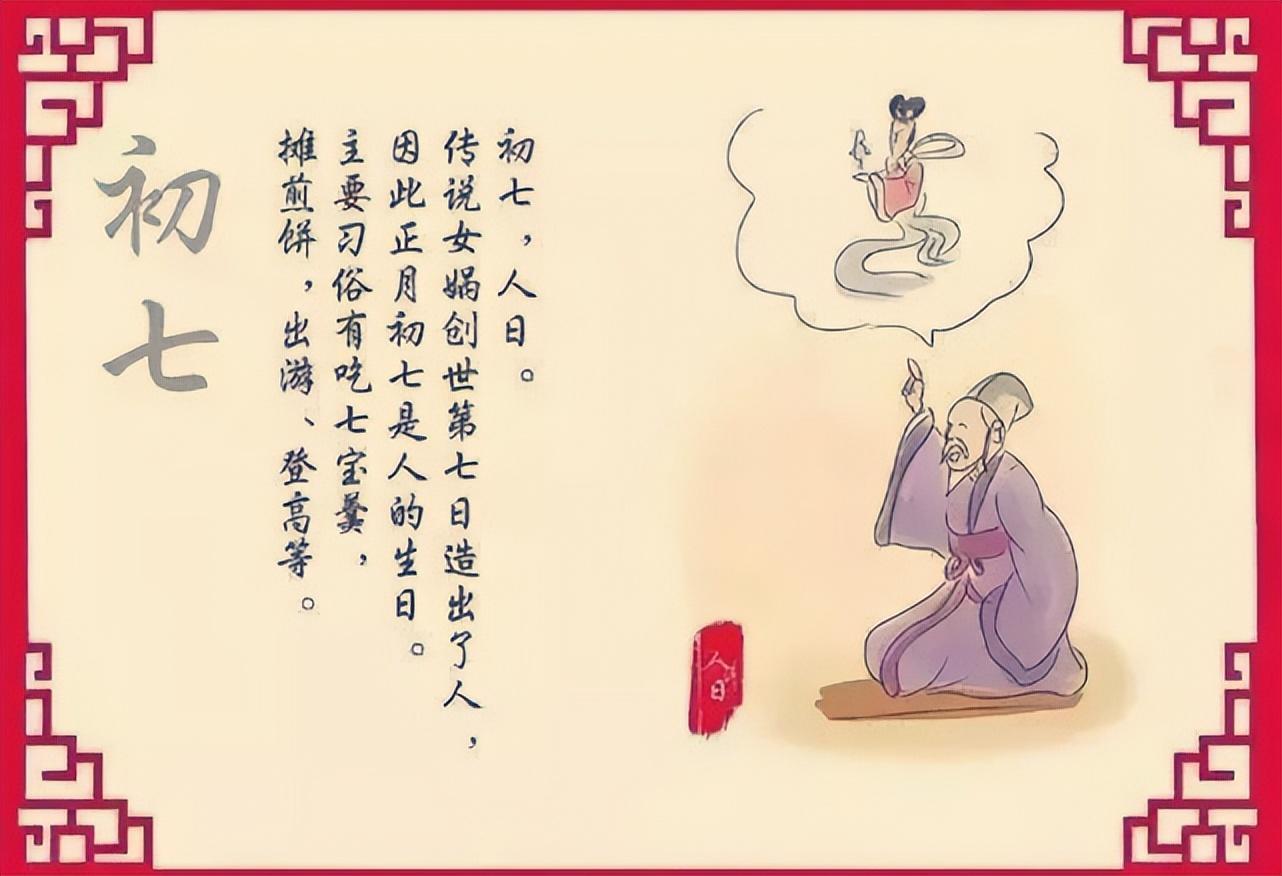 初七，人日。
传说女娲创世第七日造出了人，
因此正月初七是人的生日。
主要习俗有吃七宝羹，
摊煎饼，出游、登高等。
初七
人日